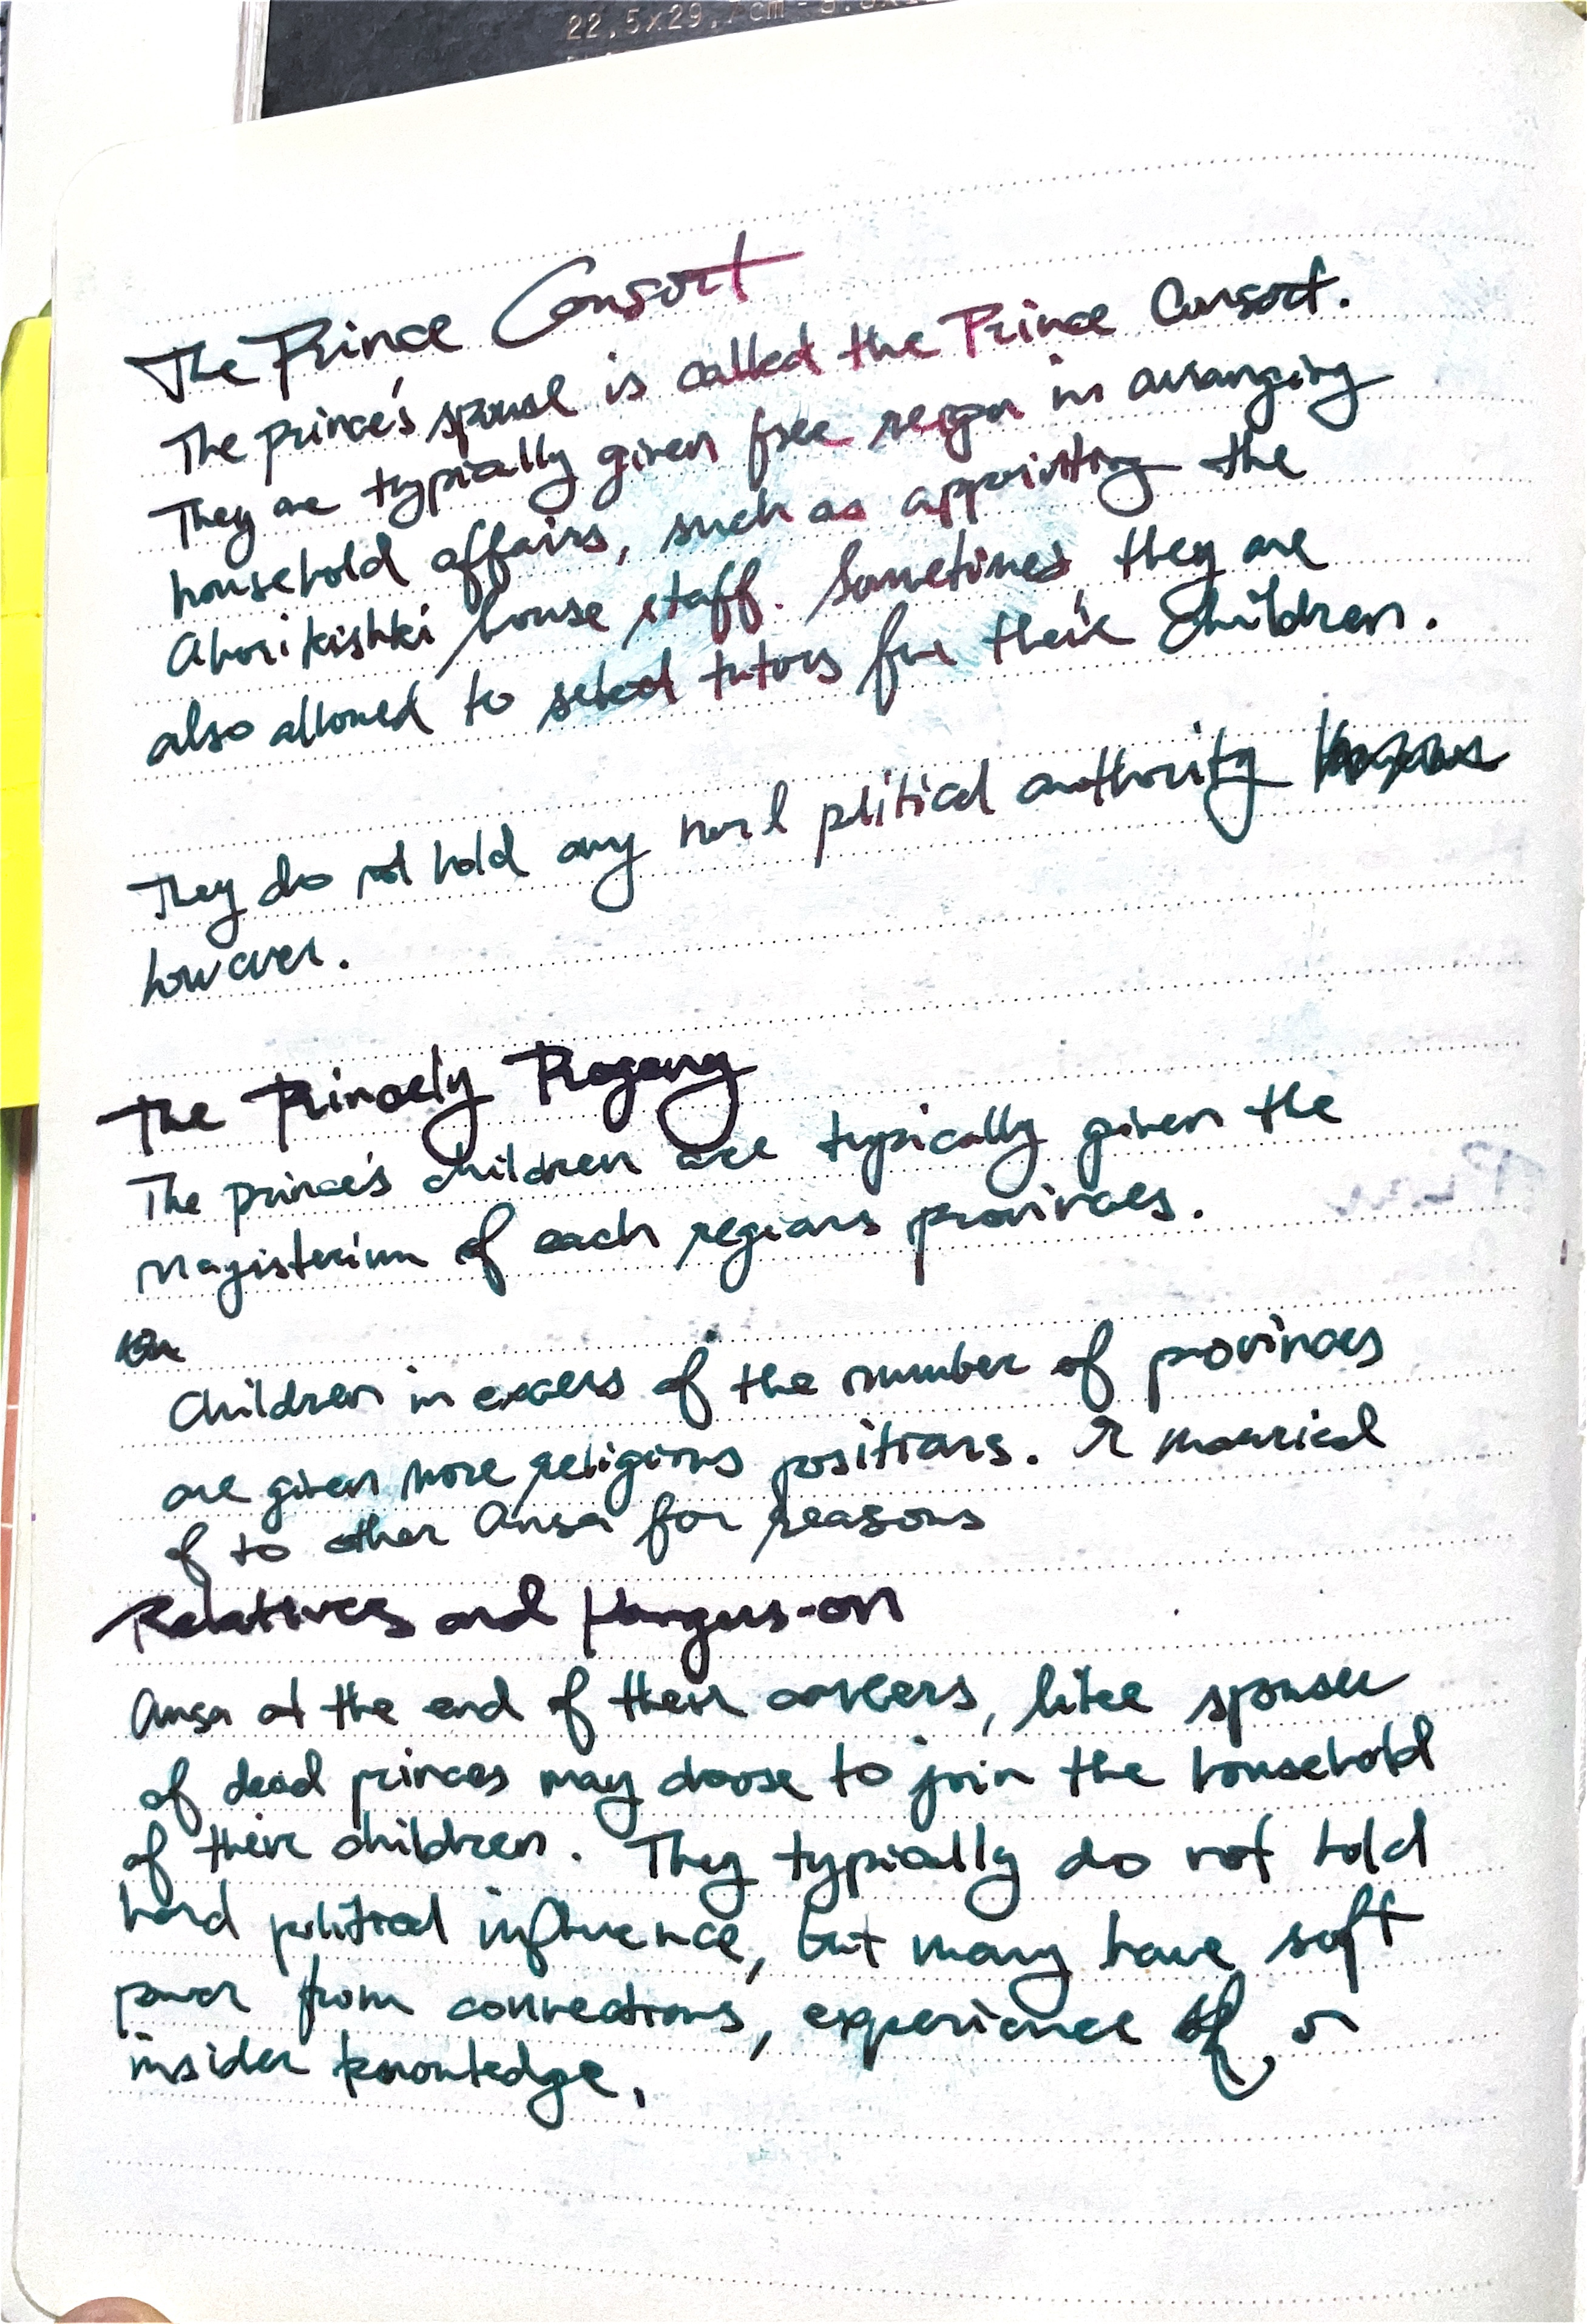 22,5x29,7cm
The Prince Consort
The prince's spouse is called the Prince Consort.
They are typically given free reign in arranging
household affairs, such as appointing the
house staff. Sometimes they are
also allowed to select tutors for their children.
They do not hold any political authority
however.
The Princely Progeny
The prince's children are typically given the
Magisterium of each regions provinces.
Children in excess of the number of provinces
are given more religious positions. R married
of to other Ansa for reasons
Relatives and Hangers-on
Ansa at the end of their careers, like spouses
of dead princes may choose to join the household
of their children. They typically do not hold
hard political influence, but many have soft
power from connections, experience or
insider knowledge.